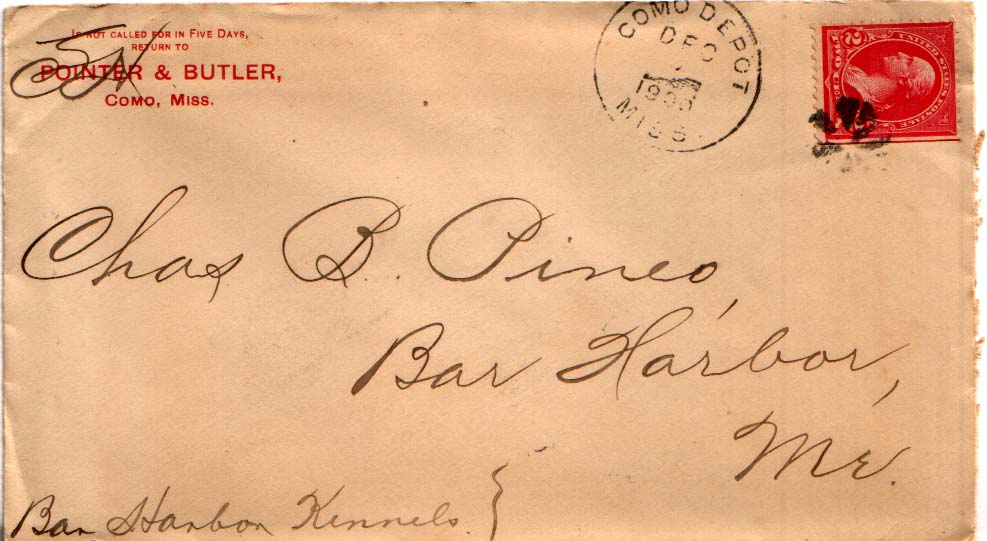 IF NOT CALLED FOR IN FIVE DAYS,
RETURN TO
POINTER & BUTLER,
COMO, MISS.
COMO DEPOT
DEC
MISS
UNITED STATES POSTAGE
2
TWO
Chas B. Pineo,
Bar Harbor,
Me.
Bar Harbor Kennels